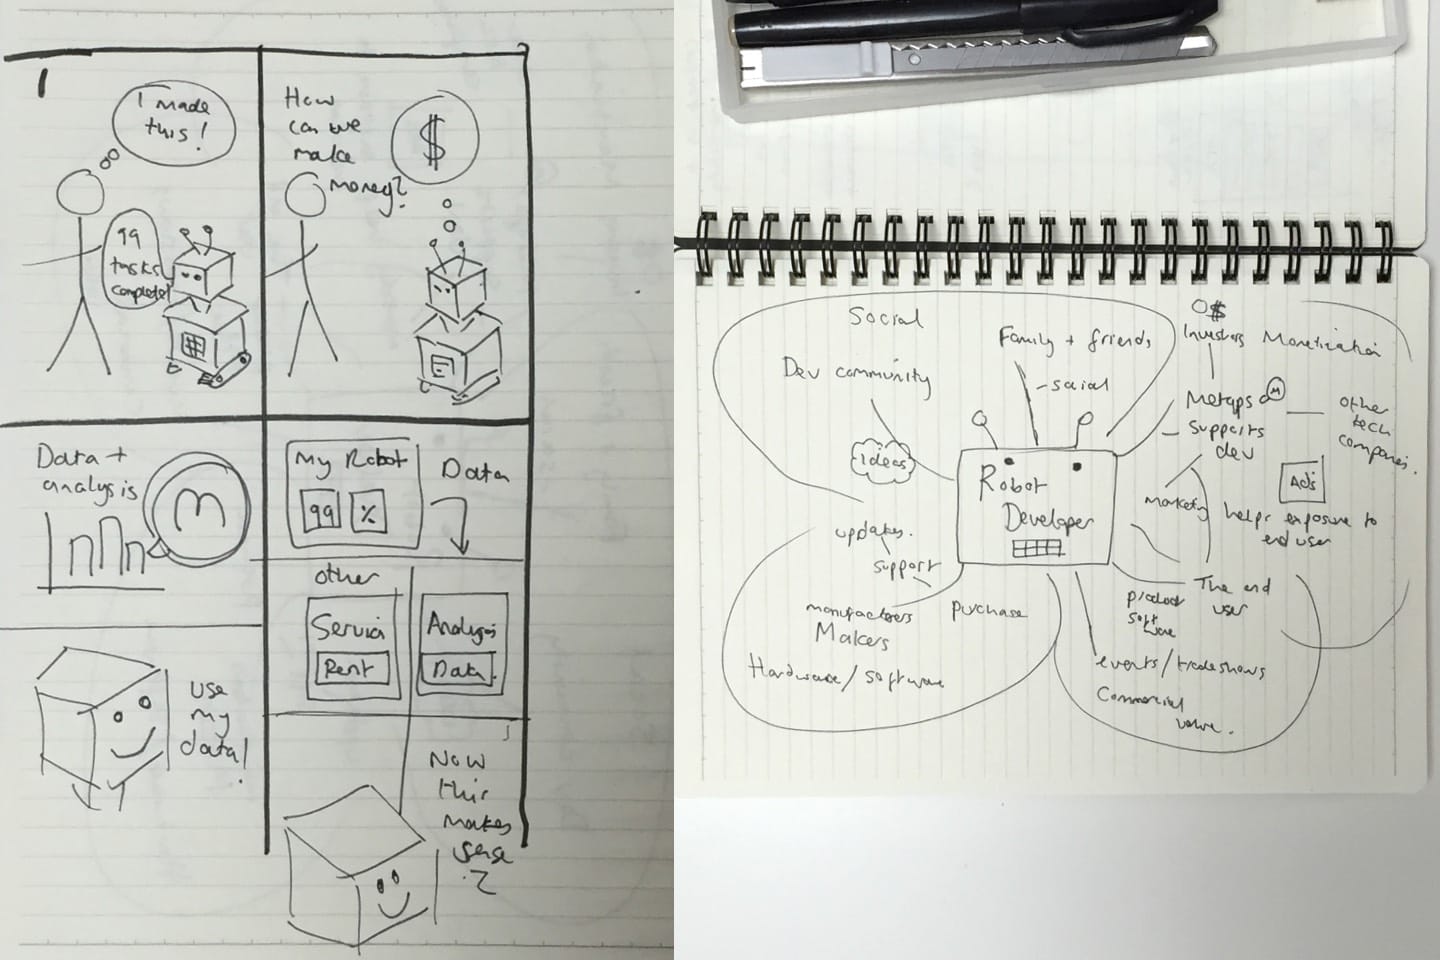 1
I made
this!
99
tasks
complete!
How
can we
make
money?
$
Data +
analysis
m
My Robot
99 %
Data
other
Service
Rent
Analysis
Data
use
my
data!
Now
this
makes
sense
?
Social
Dev community
Family + friends
- social
Ideas
Robot
Developer
updates.
support
manufacturers
Makers
purchase
Hardware/software
$
Investors Monetization
Metaps
M
supports
dev
other
tech
companies.
Marketing
Ads
helps exposure to
end user
The end
user
product
soft
ware
events/tradeshows
Commercial
value.